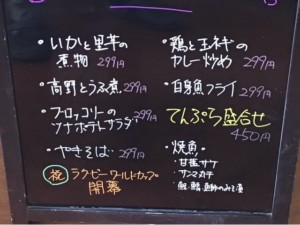 ・いかと里芋の
煮物 299円
・高野とうふ煮 299円
・ブロッコリーの
ツナポテトサラダ
・やきそば 299円
祝 ラグビーワールドカップ
開幕
・鶏と玉ネギの
カレー炒め 299円
・白身魚フライ 299円
てんぷら盛合せ
450円
・焼魚
・甘塩サケ
・サンマカド